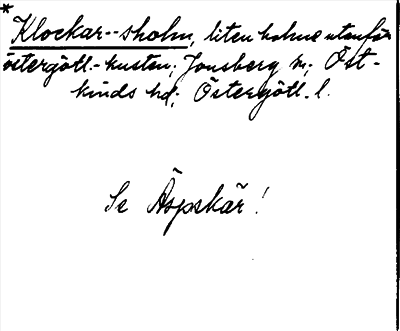 * Klockar--sholm, liten holme utanför
östergötl.-kusten; Jonsberg sn; Öst-
kinds hd; Östergötl. l.
Se Äspskär!